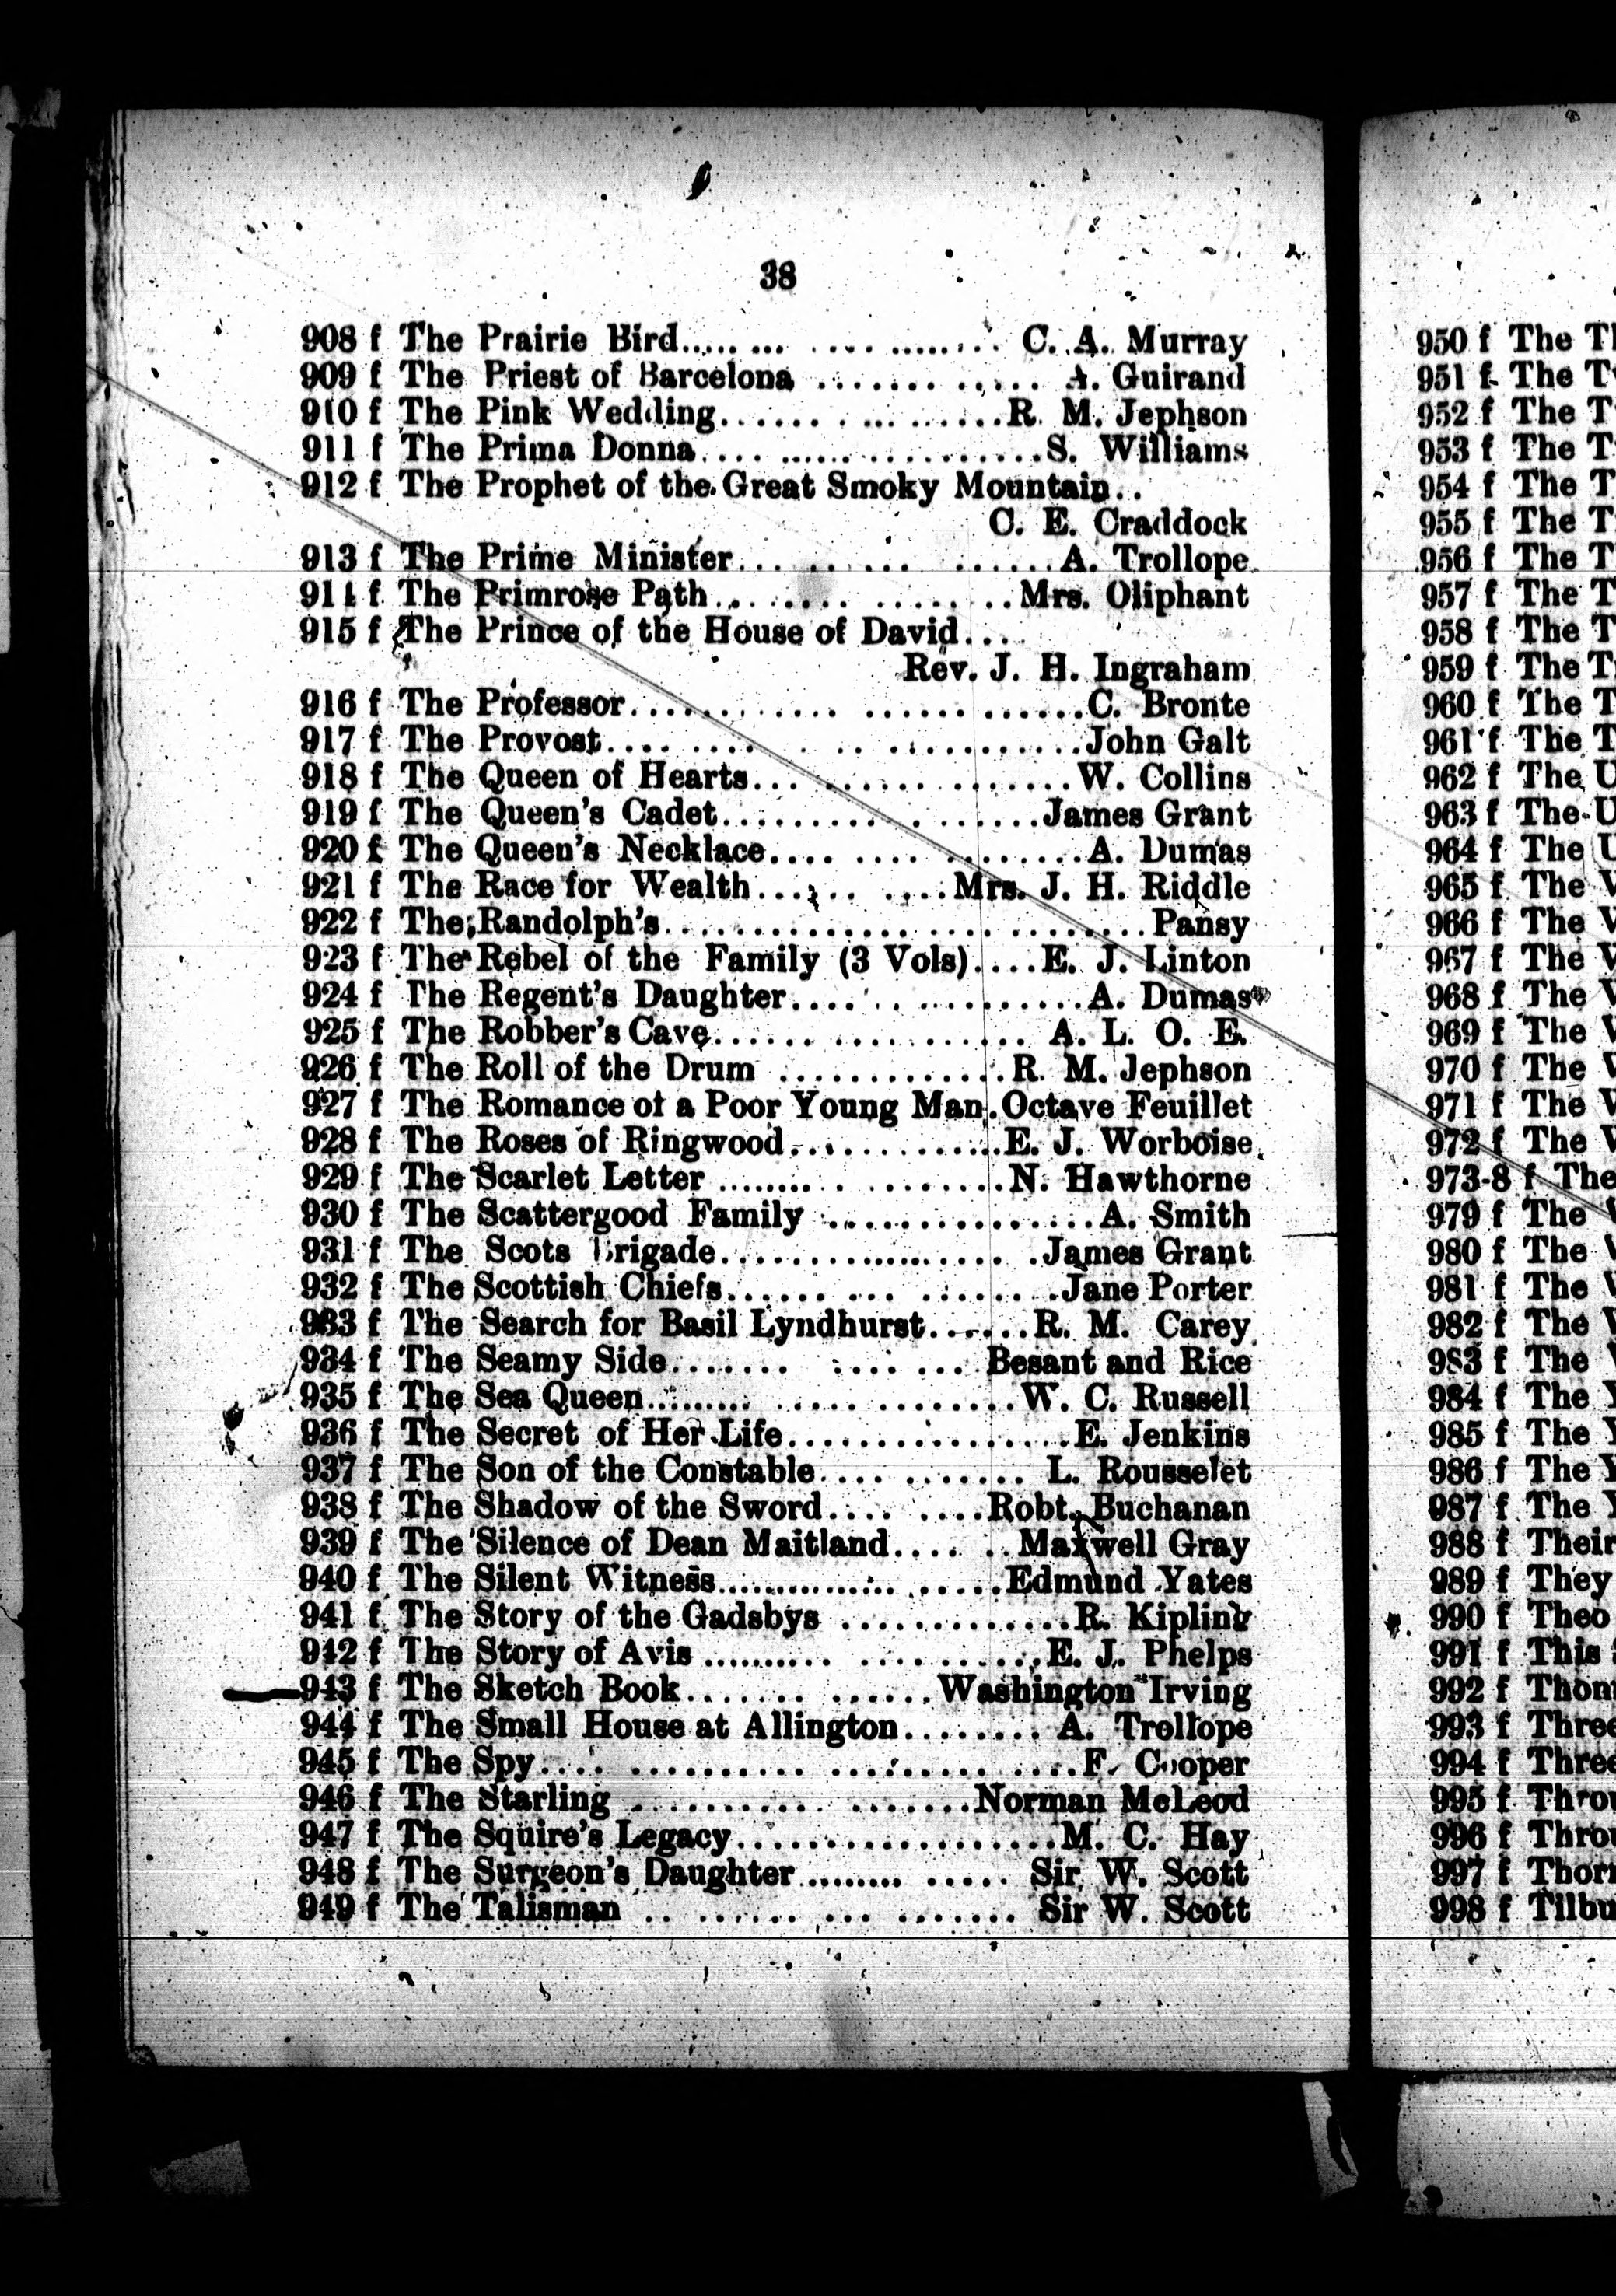 38
908 f The Prairie Bird........ .... ........ C. A. Murray
909 f The Priest of Barcelona ....... ..... A. Guirand
910 f The Pink Wedding...... . ... ......R. M. Jephson
911 f The Prima Donna.... ....................S. Williams
912 f The Prophet of the Great Smoky Mountain..
C. E. Craddock
913 f The Prime Minister... .. ... ......A. Trollope
914 f The Primrose Path.. ...... ........Mrs. Oliphant
915 f The Prince of the House of David....
Rev. J. H. Ingraham
916 f The Professor............. .............C. Bronte
917 f The Provost.... .... . .. ...........John Galt
918 f The Queen of Hearts... ................W. Collins
919 f The Queen's Cadet.......... . .......James Grant
920 f The Queen's Necklace.... .... ........A. Dumas
921 f The Race for Wealth...... ....Mrs. J. H. Riddle
922 f The Randolph's............................Pansy
923 f The Rebel of the Family (3 Vols)....E. J. Linton
924 f The Regent's Daughter.... . ...........A. Dumas
925 f The Robber's Cave...... ........... A. L. O. E.
926 f The Roll of the Drum .............R. M. Jephson
927 f The Romance of a Poor Young Man.Octave Feuillet
928 f The Roses of Ringwood............E. J. Worboise
929 f The Scarlet Letter ......... . .........N. Hawthorne
930 f The Scattergood Family ................A. Smith
931 f The Scots Brigade................. .James Grant
932 f The Scottish Chiefs...... ... .......Jane Porter
933 f The Search for Basil Lyndhurst......R. M. Carey
934 f The Seamy Side....... .... ....Besant and Rice
935 f The Sea Queen.......... ..............W. C. Russell
936 f The Secret of Her Life................E. Jenkins
937 f The Son of the Constable.... ....... L. Rousselet
938 f The Shadow of the Sword.... ....Robt. Buchanan
939 f The Silence of Dean Maitland.... ..Maxwell Gray
940 f The Silent Witness................ .....Edmund Yates
941 f The Story of the Gadsbys .............R. Kipling
942 f The Story of Avis .......... ..........E. J. Phelps
943 f The Sketch Book....... ......Washington Irving
944 f The Small House at Allington........ A. Trollope
945 f The Spy.... .......... .............F. Cooper
946 f The Starling ........... .......Norman McLeod
947 f The Squire's Legacy..................M. C. Hay
948 f The Surgeon's Daughter ........ ..... Sir W. Scott
949 f The Talisman .. ...... ... ....... Sir W. Scott
950 f The
951 f The
952 f The
953 f The
954 f The
955 f The
956 f The
957 f The
958 f The
959 f The
960 f The
961 f The
962 f The
963 f The
964 f The
965 f The
966 f The
967 f The
968 f The
969 f The
970 f The
971 f The
972 f The
973-8 f The
979 f The
980 f The
981 f The
982 f The
983 f The
984 f The
985 f The
986 f The
987 f The
988 f Their
989 f They
990 f Theo
991 f This
992 f
993 f
994 f
995 f
996 f
997 f
998 f